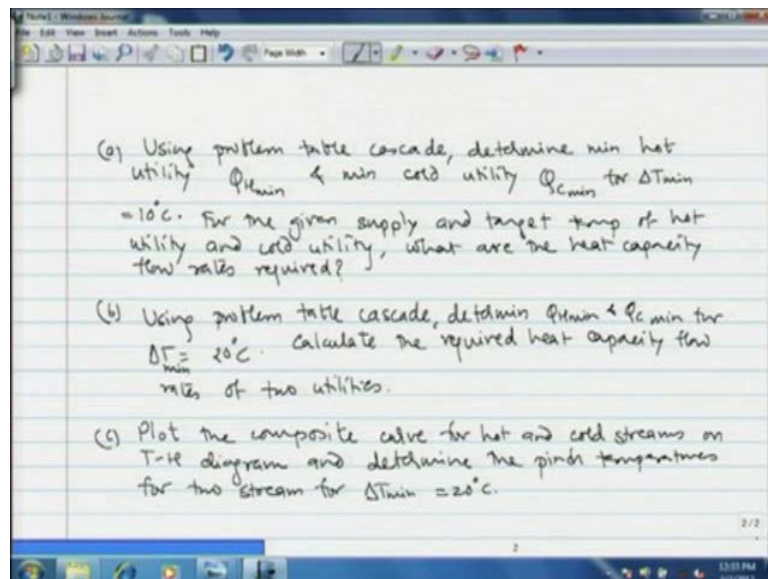 Note1 - Windows Journal
File Edit View Insert Actions Tools Help
Page Width
(a) Using problem table cascade, determine min hot
utility QHmin & min cold utility QCmin for ΔTmin
=10°C. For the given supply and target temp of hot
utility and cold utility, what are the heat capacity
flow rates required?
(b) Using problem table cascade, detdmin QHmin & QC min for
ΔTmin = 20°C. Calculate the required heat capacity flow
rates of two utilities.
(c) Plot the composite calve for hot and cold streams on
T-H diagram and determine the pinch temperatures
for two stream for ΔTmin =20°C.
2/2
2
12:51 PM